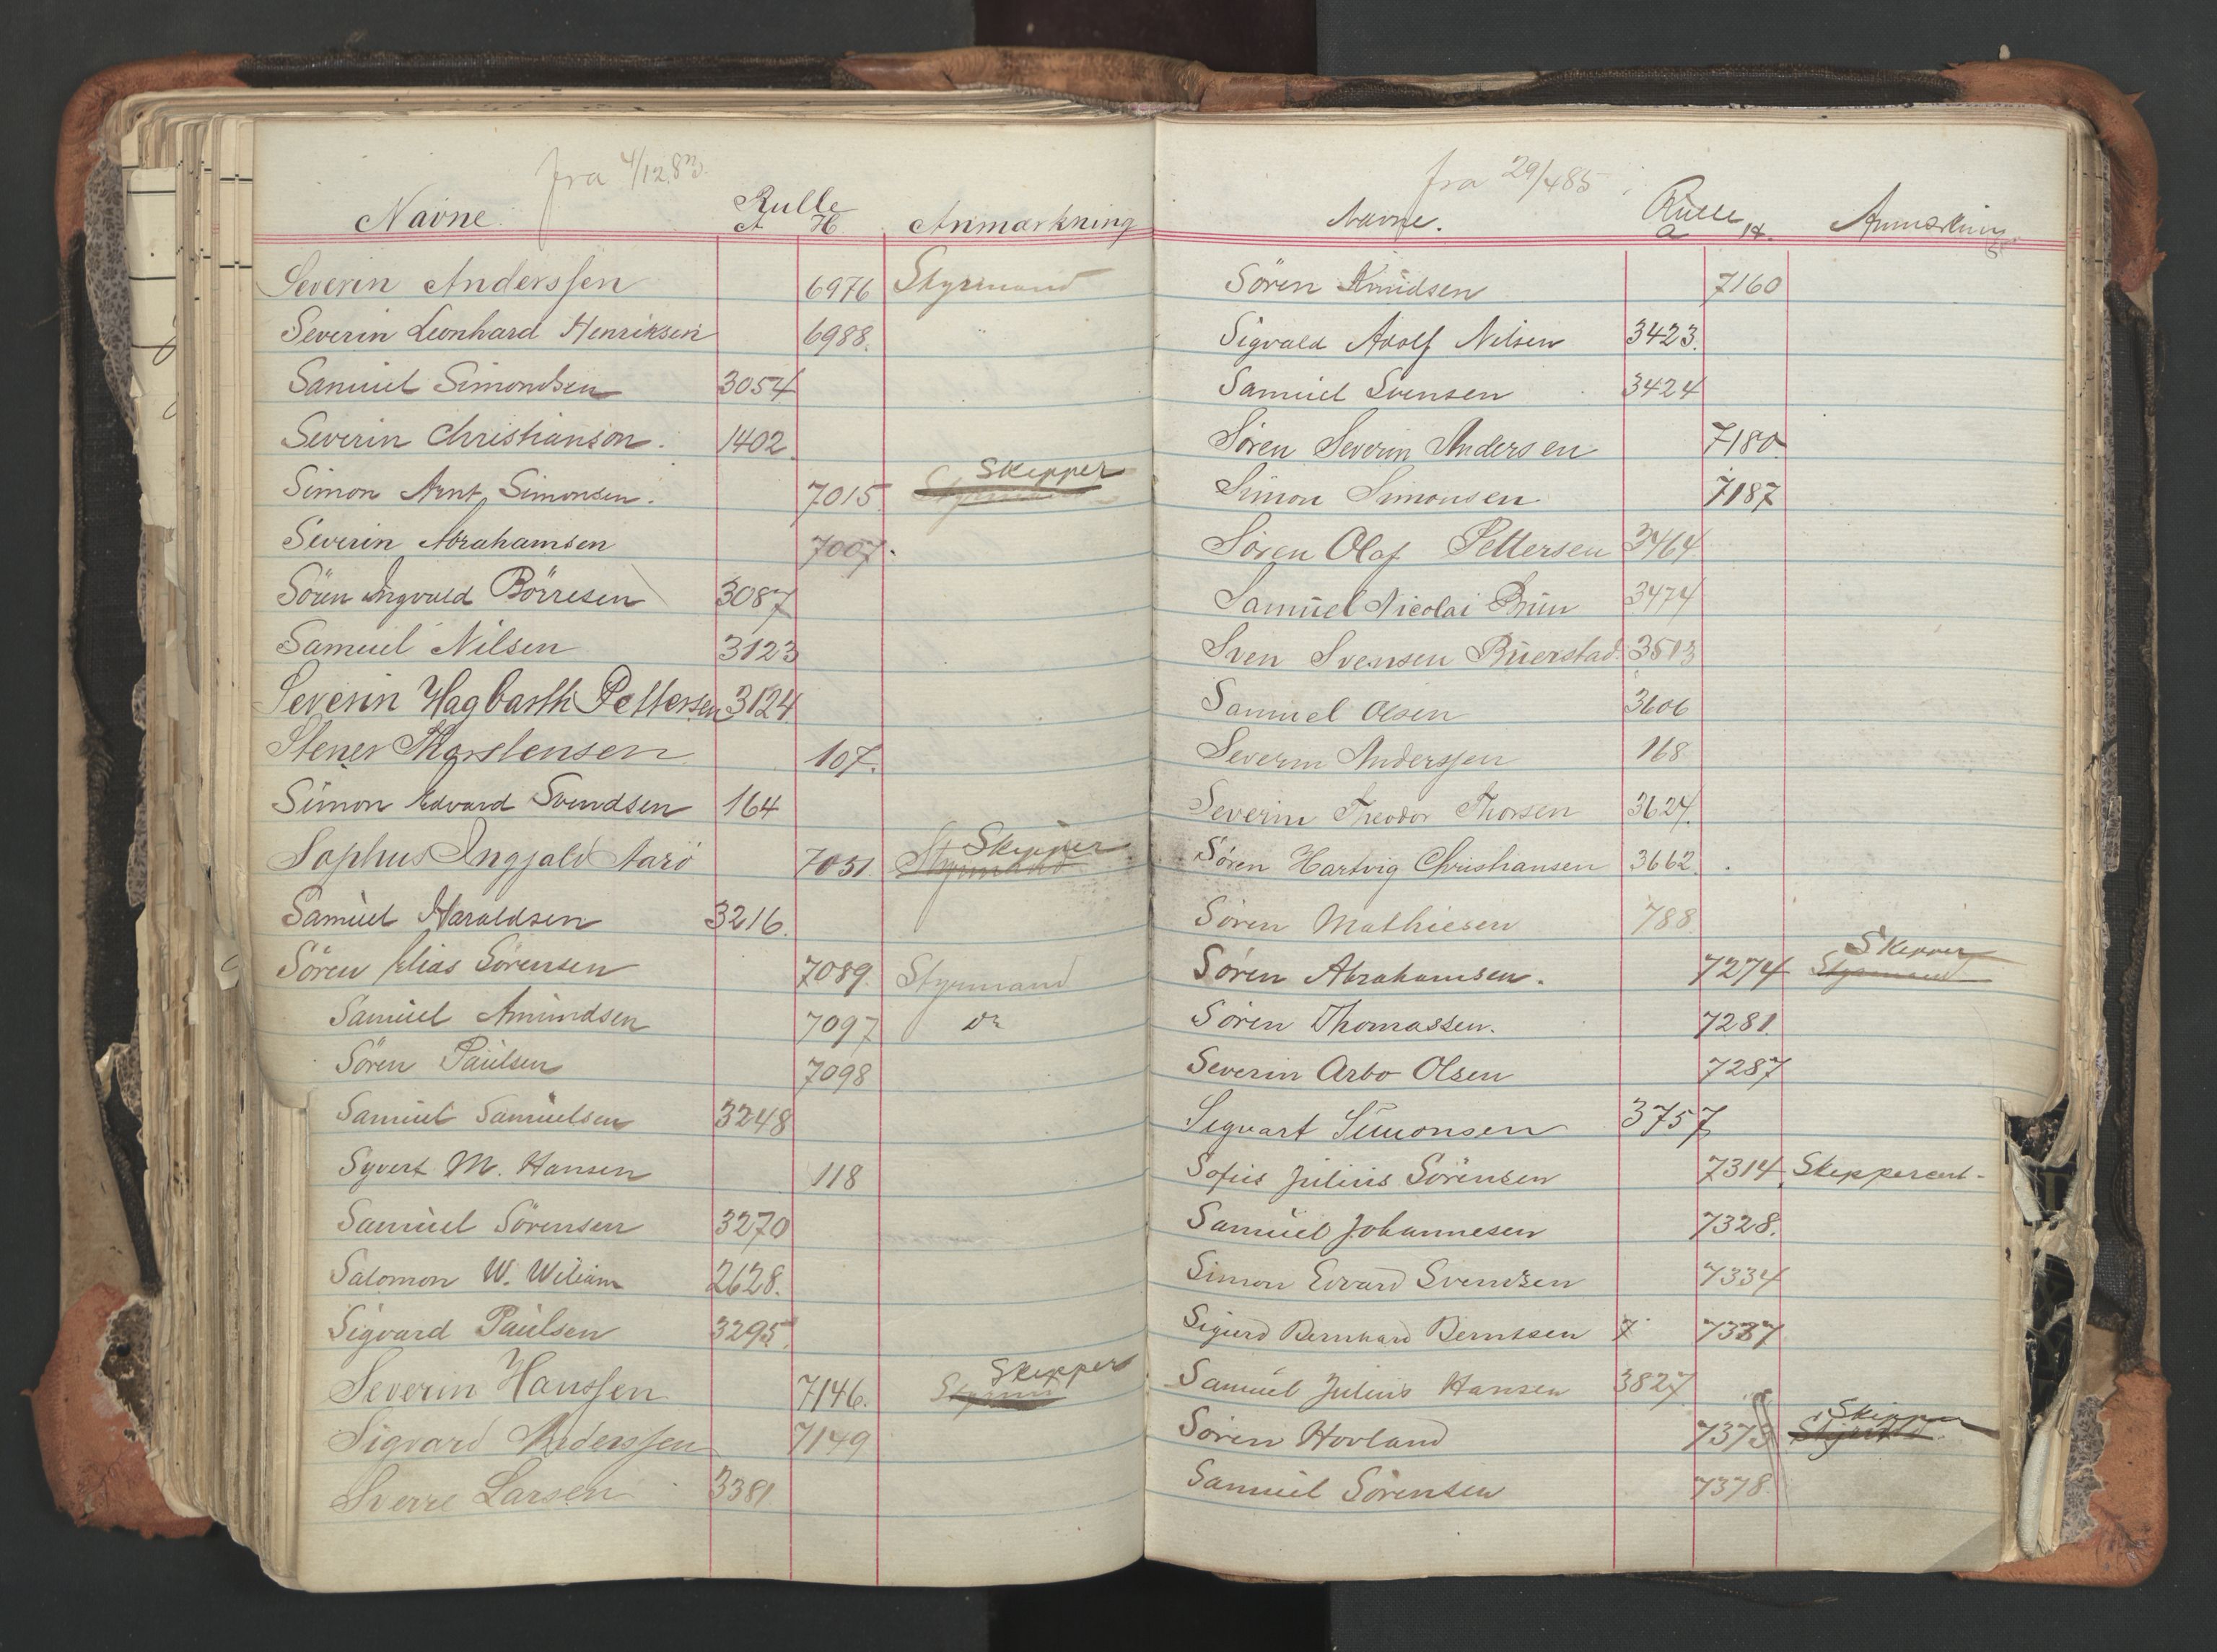 fra 4/12.83.
Navne. Rulle
A H. Anmærkning
Severin Anderssen 6976 Styrmand
Severin Leonhard Henriksen 6988.
Samuel Simondsen 3054
Severin Christianson. 1402.
Simon Arnt Simonsen. 7015. Styrmand Skipper
Severin Abrahamsen 7007.
Sören Ingvald Börresen 3087
Samuel Nilsen 3123
Severin Hagbarth Pettersen 3124
Stener Thorstensen 107.
Simon Edvard Svendsen 164
Sophus Ingjald Aarö 7051. Styrmand Skipper
Samuel Haraldsen 3216.
Sören Elias Sörensen 7089. Styrmand
Samuel Amundsen 7097 Do
Sören Paulsen 7098
Samuel Samuelsen 3248
Syvert M. Hansen 118
Samuel Sörensen 3270
Salomon W. Wiliam 2628.
Sigvard Paulsen 3295.
Severin Hanssen 7146. Skipper
Sigvard Anderssen 7149
Sverre Larsen 3381
fra 29/485
Navne. Rulle
a H. Anmærkning
Sören Knudsen 7160
Sigvald Adolf Nilsen 3423.
Samuel Svensen 3424
Sören Severin Andersen 7180.
Simon Simonsen 7187
Sören Olaf Pettersen 3464
Samuel Nicolai Bruu 3474
Sven Svensen Buerstad. 3513
Samuel Olsen 3606
Severin Anderssen 168
Severin Theodor Thorsen 3624.
Sören Hartvig Christiansen 3662.
Sören Mathiesen 788
Sören Abrahamsen. 7274 Styrmand Skipper
Sören Thomassen. 7281.
Severin Arbo Olsen 7287
Sigvart Simonsen 3757
Sofus Julius Sörensen 7314 Skippercert-
Samuel Johannesen 7328.
Simon Edvard Svendsen 7334
Sigurd Bernhard Berntsen 7 7337
Samuel Julius Hansen 3827
Sören Hovland 7373 Skipper
Samuel Sörensen 7378.